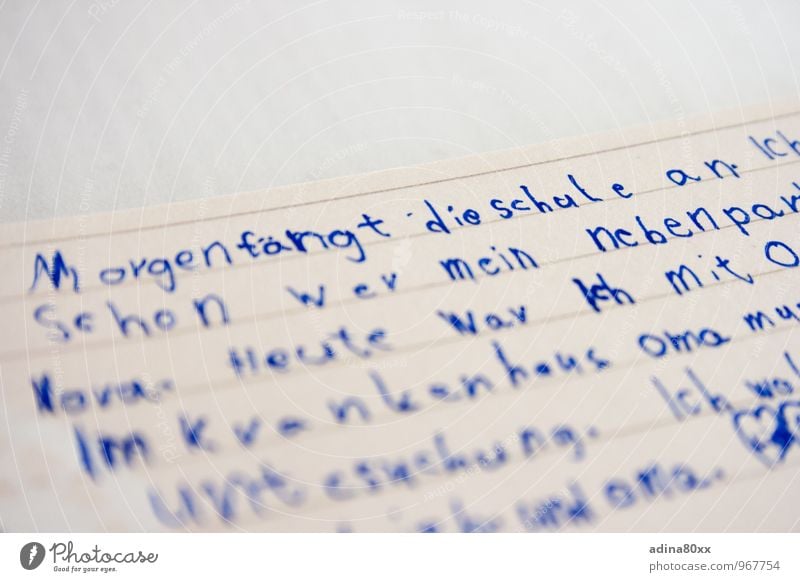 Morgen fängt die schule an. Ich
Schon wer mein nebenpar
Nora. Heute war Ich mit O
Im Krankenhaus oma mu
Untersuchung. Ich
und oma.
PHOTOCASE
Good for your eyes.
adina80xx
967754